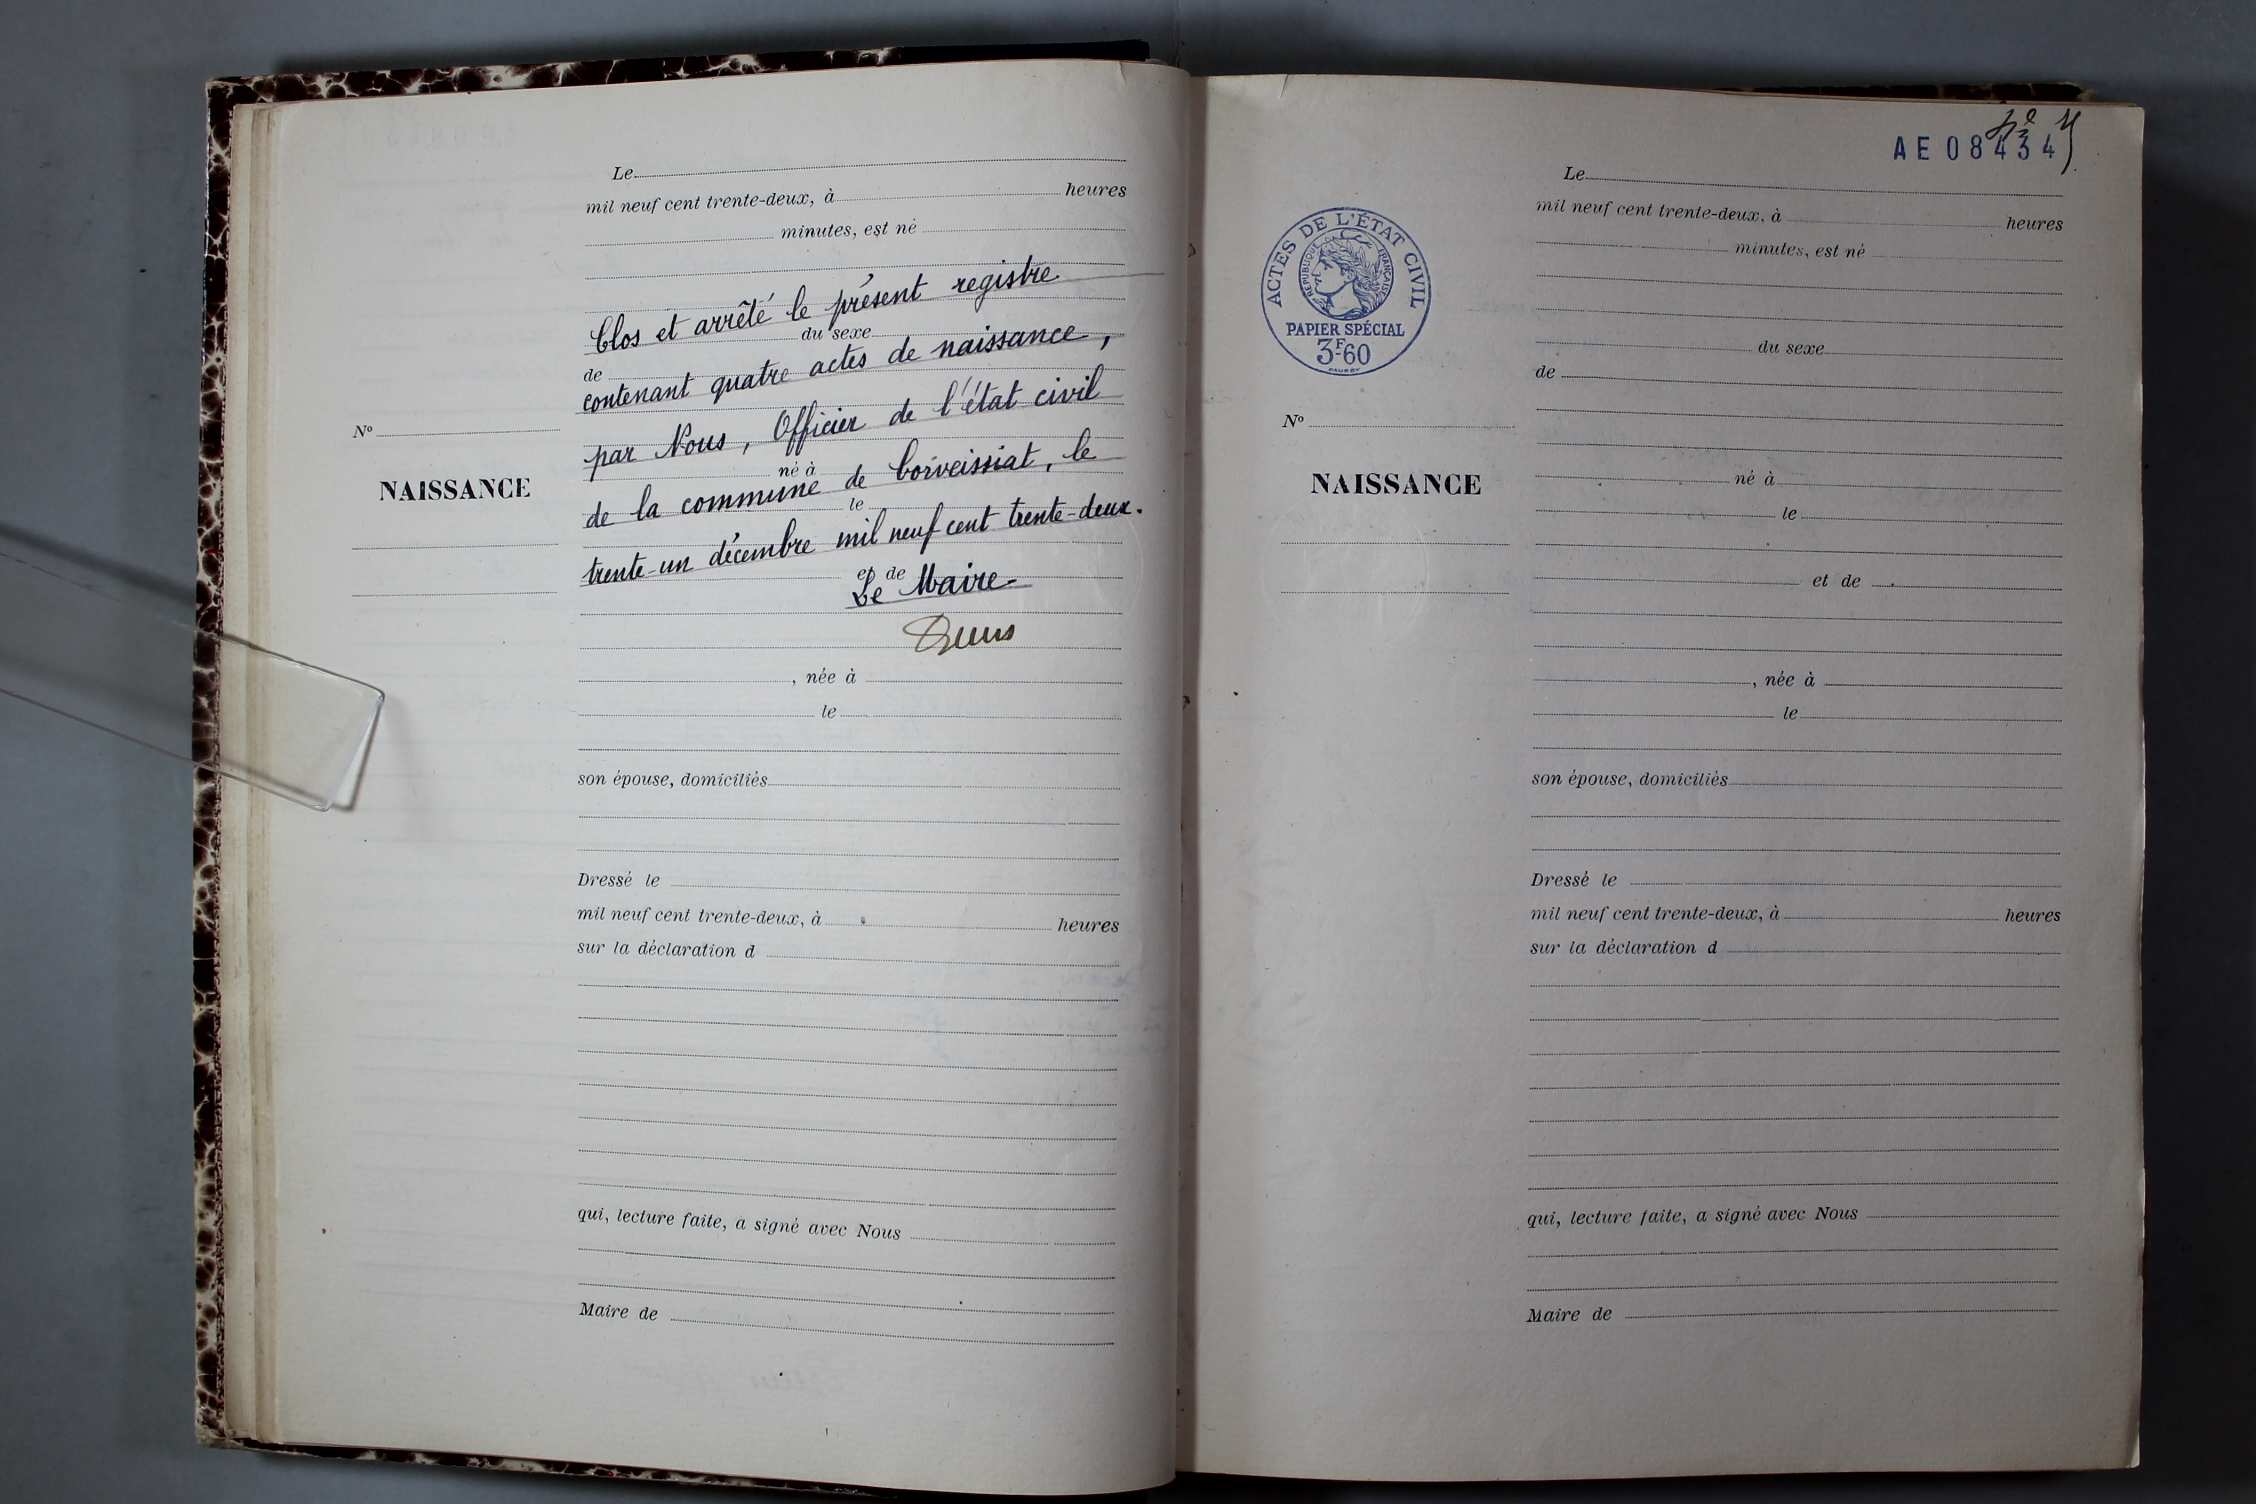 Le
mil neuf cent trente-deux, à heures
minutes, est né
Clos et arrêté le présent registre
du sexe
de
contenant quatre actes de naissance,
par Nous, Officier de l'état civil
né à
de la commune de Corveissiat, le
le
trente-un décembre mil neuf cent trente-deux.
et de
Le Maire
, née à
le
son épouse, domiciliés
Dressé le
mil neuf cent trente-deux, à heures
sur la déclaration d
qui, lecture faite, a signé avec Nous
Maire de
No
NAISSANCE
AE 08434
ACTES DE L'ÉTAT CIVIL
RÉPUBLIQUE FRANÇAISE
PAPIER SPÉCIAL
3F.60
No
NAISSANCE
Le
mil neuf cent trente-deux, à heures
minutes, est né
du sexe
de
né à
le
et de
, née à
le
son épouse, domiciliés
Dressé le
mil neuf cent trente-deux, à heures
sur la déclaration d
qui, lecture faite, a signé avec Nous
Maire de